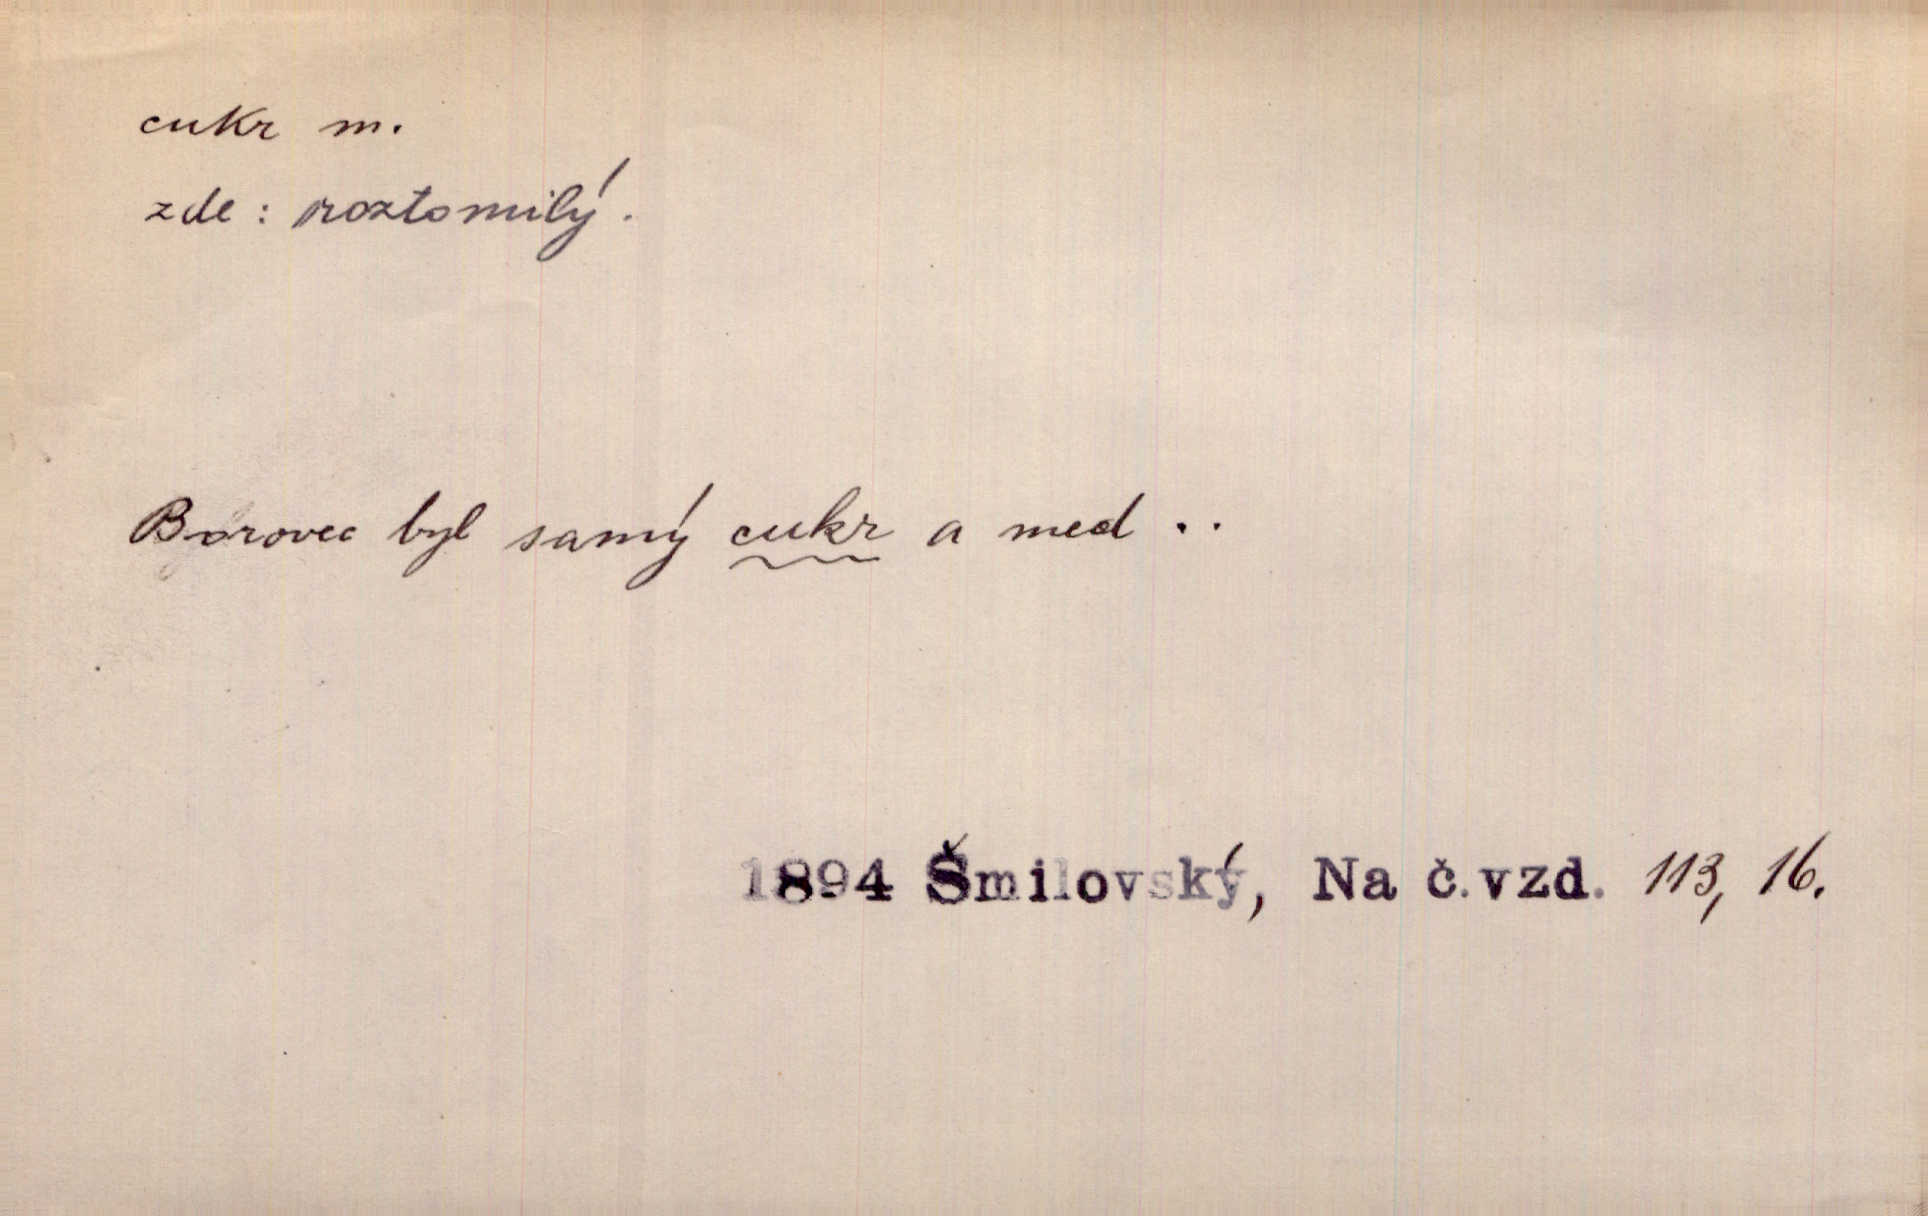 cukr m.
zde: roztomilý.
Borovec byl samý cukr a med ..
1894 Šmilovský, Na č.vzd. 113, 16.